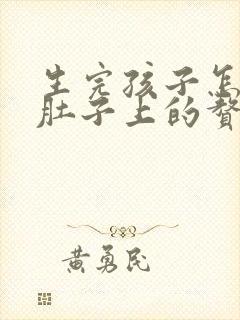 生完孩子怎
肚子上的赘
黄勇民